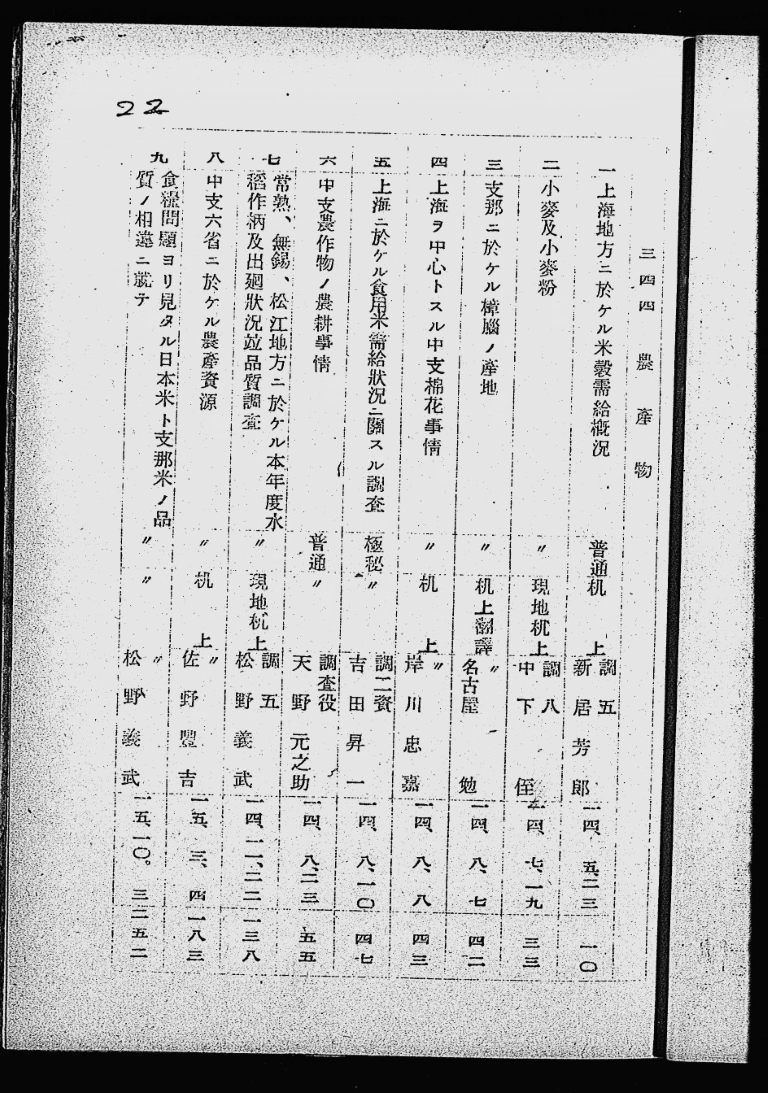 22
三四四 農產物
一 上海地方ニ於ケル米穀需給概況 普通 机上 調五 新居芳郎 一四、五、二三 一〇
二 小麥及小麥粉 〃 現地机上 調八 中下 一四、七、一九 三三
三 支那ニ於ケル樟腦ノ產地 〃 机上翻譯 〃 名古屋勉 一四、八、七 四二
四 上海ヲ中心トスル中支棉花事情 〃 机上 〃 岸川忠嘉 一四、八、八 四三
五 上海ニ於ケル食用米需給狀況ニ關スル調査 極秘 〃 調二資 吉田昇一 一四、八、一〇 四七
六 中支農作物ノ農耕事情 普通 〃 調査役 天野元之助 一四、八、二三 五五
七 常熟、無錫、松江地方ニ於ケル本年度水
稻作柄及出廻狀況竝品質調査 〃 現地机上 調五 松野義武 一四、一一、二二 一三八
八 中支六省ニ於ケル農產資源 〃 机上 〃 佐野豐吉 一五、三、四 一八三
九 食糧問題ヨリ見タル日本米ト支那米ノ品
質ノ相違ニ就テ 〃 〃 〃 松野義武 一五、一〇。三 二五二